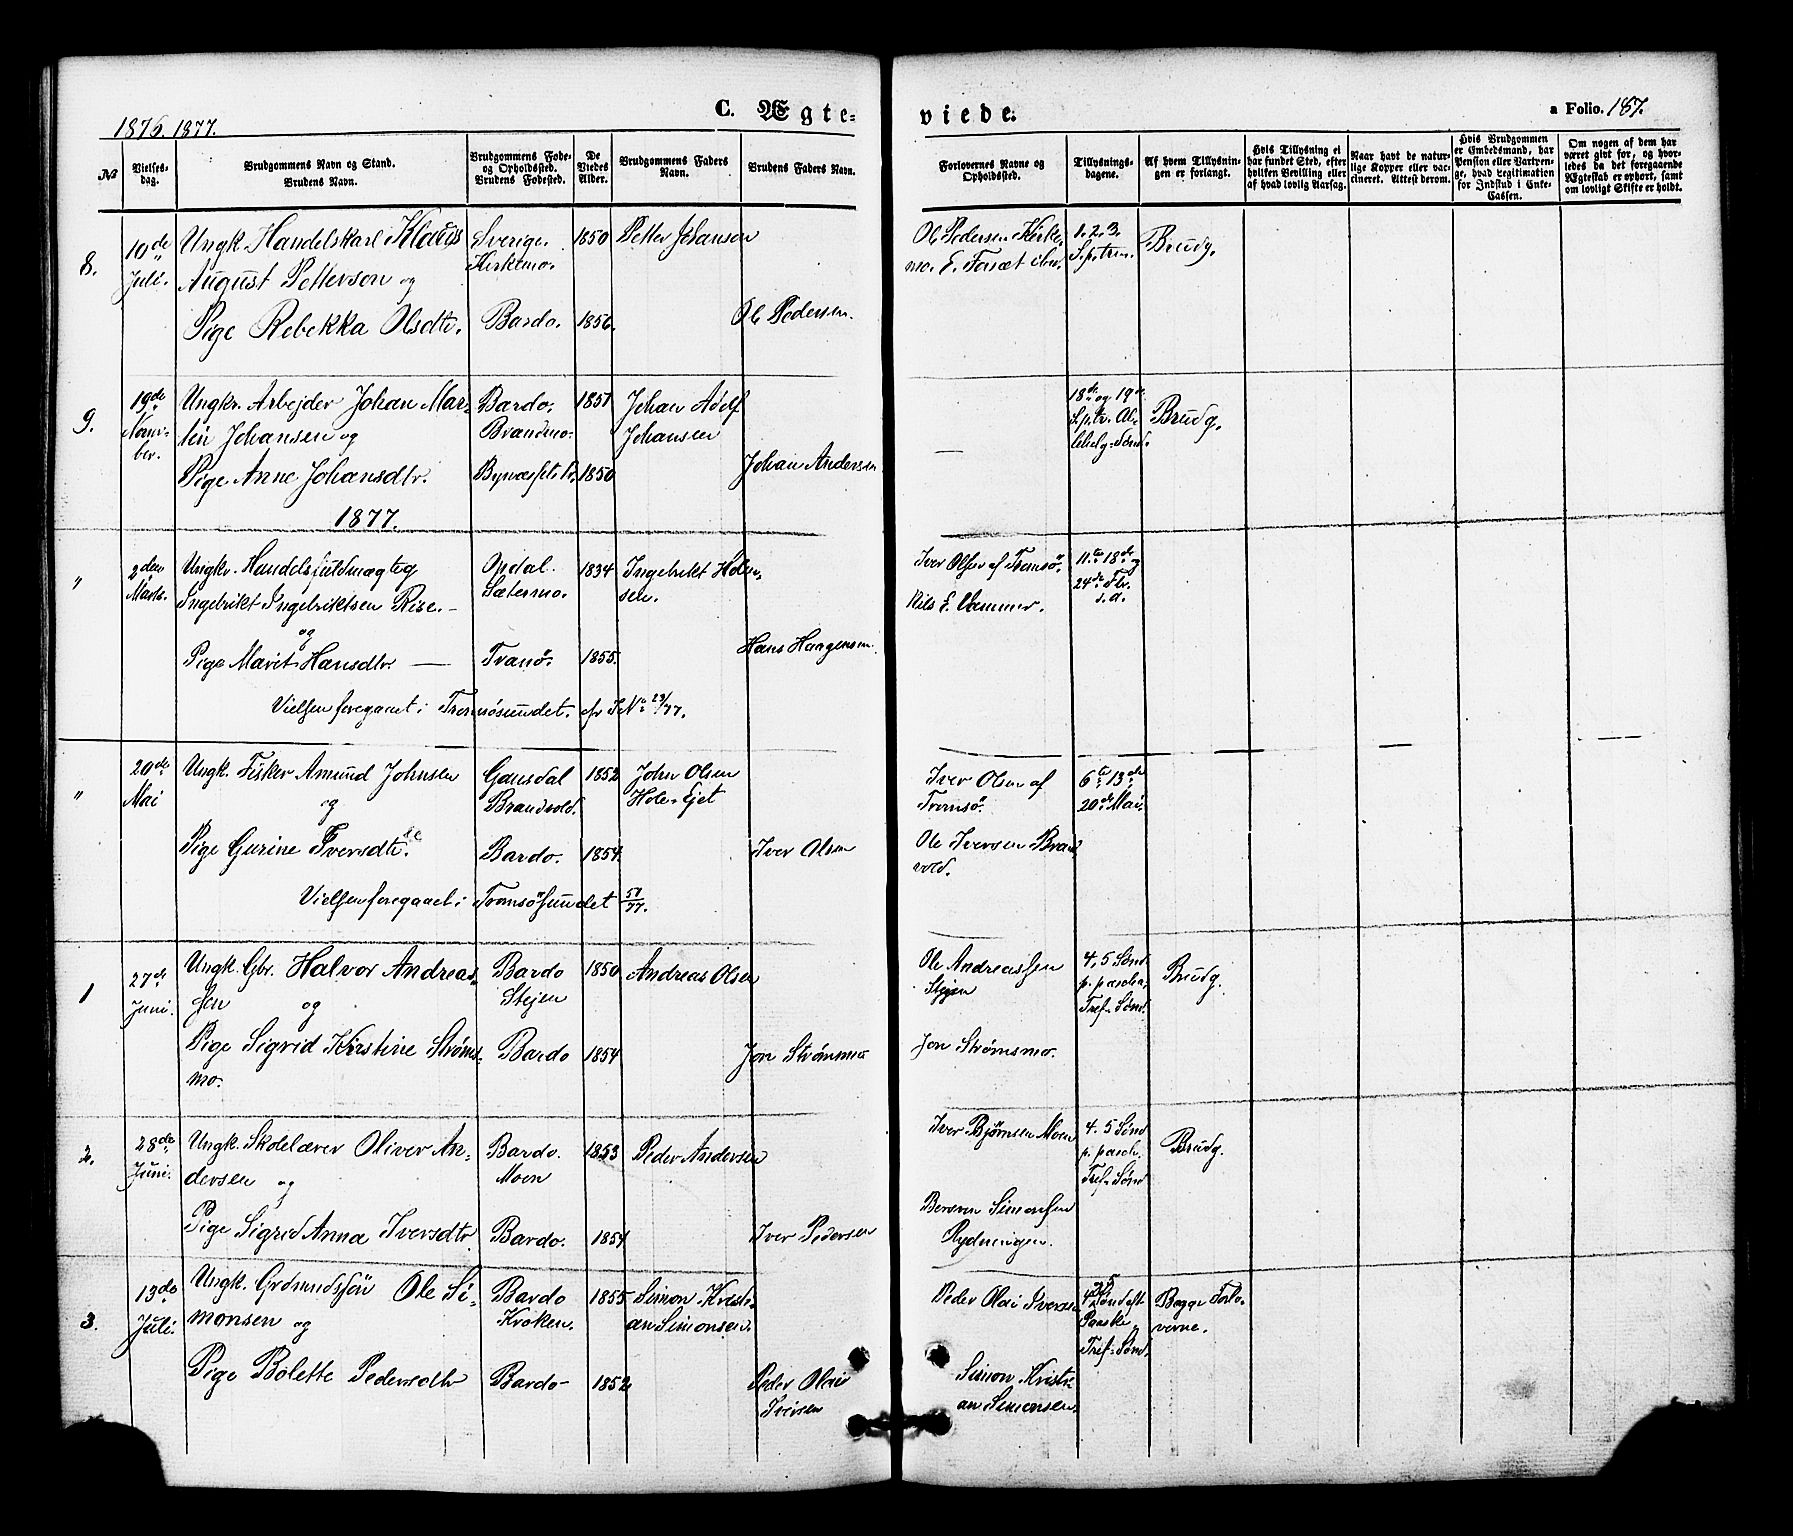 1876. 1877.
C. Ægte-
viede.
a Folio. 187.
No
Vielses-
dag.
Brudgommens Navn og Stand.
Brudens Navn.
Brudgommens Føde-
og Opholdssted.
Brudens Fødested.
De
Viedes
Alder.
Brudgommens Faders
Navn.
Brudens Faders Navn.
Forlovernes Navne og
Opholdssted.
Tillysnings-
dagene.
Af hvem Tillysnin-
gen er forlangt.
Hvis Tillysning ei
har fundet Sted, efter
hvilken Bevilling eller
af hvad lovlig Aarsag.
Naar havt de natur-
lige Kopper eller vac-
cineret. Attest derom.
Hvis Brudgommen
er Embedsmand, har
Pension eller Vartpen-
ge, hvad Legitimation
for Indskud i Enke-
Cassen.
Om nogen af dem har
været gift før, og hvor-
ledes da det foregaaende
Ægteskab er ophørt, samt
om lovligt Skifte er holdt.
8.
10de
Juli.
Ungk. Handelskarl Klaus
August Petterson og
Pige Rebekka Olsdtr.
Sverige.
Kirkemo.
Bardo.
1850
1856.
Petter Johanson
Ole Pedersen.
Ole Pedersen Kirke-
mo. E. Fosæt ibd.
1. 2. 3.
S. p. trin.
Brudg.
9.
19de
Novem-
ber.
Ungkr. Arbejder Johan Mar-
tin Johansen og
Pige Anne Johansdtr.
Bardo.
Brandmo.
Bynæsset
1851
1850
Johan Adolf
Johansen
Johan Andersen
—
18de og 19de
S. p. tr.
Brudg.
1877.
"
2den
Marts.
Ungkr. Handelsfuldmægtig
Ingebrikt Ingebriktsen Rise. —
og
Pige Marit Hansdtr. —
Opdal.
Sætermo.
Tranö.
1834
1855.
Ingebrikt Halvor-
sen.
Hans Haagensen.
Iver Olsen af Tromsö.
Nils E. Vammer.
11te 18de og
24de Fbr.
s. a.
Vielsen foregaaet i Tromsösundet. 23/77.
"
20de
Mai
Ungk. Fisker Amund Johnsen
og
Pige Gurine Iversdtr.
Gausdal
Brandvold.
Bardo.
1852
1854
John Olsen
Holen Ejet
Iver Olsen
Iver Olsen af
Tromsö.
Ole Iversen Brand-
vold.
6te 13de
20de Mai.
Vielsen foregaaet i Tromsösundet 51/77.
1
27de
Juni.
Ungk. Gbr. Halvor Andreas-
sen og
Pige Sigrid Kirstine Ströms-
mo.
Bardo
Stejen
Bardo
1850
1854
Andreas Olsen
Jon Strömsmo
Ole Andreassen
Stejen
Jon Strömsmo.
4. 5 Sönd.
p. pascha,
Tref. Sönd.
Brudg.
2.
28de
Juni.
Ungk. Skolelærer Oliver An-
dersen og
Pige Sigrid Anna Iversdtr
Bardo.
Moen
Bardo.
1853
1854
Peder Andersen
Iver Pedersen
Iver Björnsen Moen
Bersven Simonsen
Rydningen.
4. 5 Sönd
p. pasch.
Tref. Sönd
Brudg.
3.
13de
Juli.
Ungk. Grdmandssön Ole Si-
monsen og
Pige Bolette Pedersdtr
Bardo
Kroken.
Bardo-
1855
1852
Simon Kristi-
an Simonsen.
Peder Olai
Iversen
Peder Olai Iversen
Simon Kristi-
an Simonsen.
4 5
Sönd eft
Paaske
Tref. Sönd.
Begge Forlo-
verne.